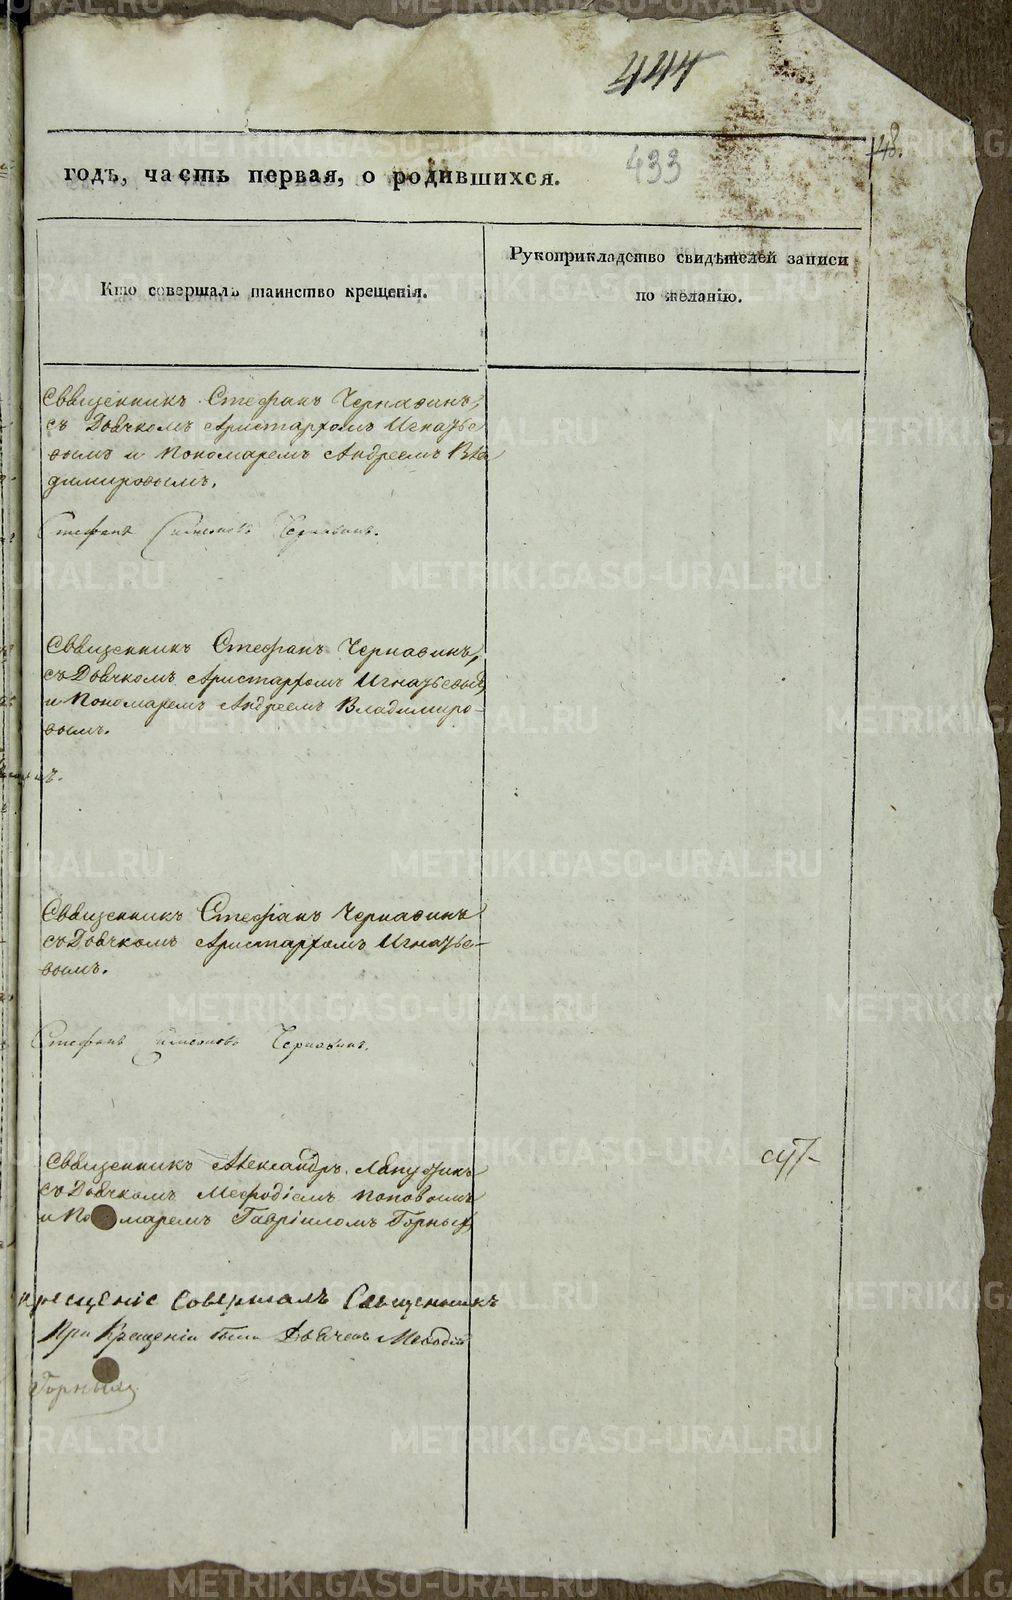 444
48.
433
годъ, часть первая, о родившихся.
Кто совершалъ таинство крещенія.
Рукоприкладство свидѣтелей записи
по желанію.
Священникъ Стефанъ Чернавинъ,
съ Дьячкомъ Аристархомъ Игнатье
вымъ и Пономаремъ Андреемъ Вла
димировымъ.
Стефанъ Симеоновъ Чернавинъ.
Священникъ Стефанъ Чернавинъ,
съ Дьячкомъ Аристархомъ Игнатьевымъ
и Пономаремъ Андреемъ Владимиро-
вымъ.
Священникъ Стефанъ Чернавинъ
съ Дьячкомъ Аристархомъ Игнатье-
вымъ.
Стефанъ Симеоновъ Чернавинъ.
Священникъ Александръ Лапухинъ
съ Дьячкомъ Мефодіемъ Поповымъ
и Пономаремъ Гавріиломъ Горныхъ
крещеніе совершалъ Священникъ
При Крещеніи были Дьячекъ Мефодій
Горныхъ
METRIKI.GASO-URAL.RU